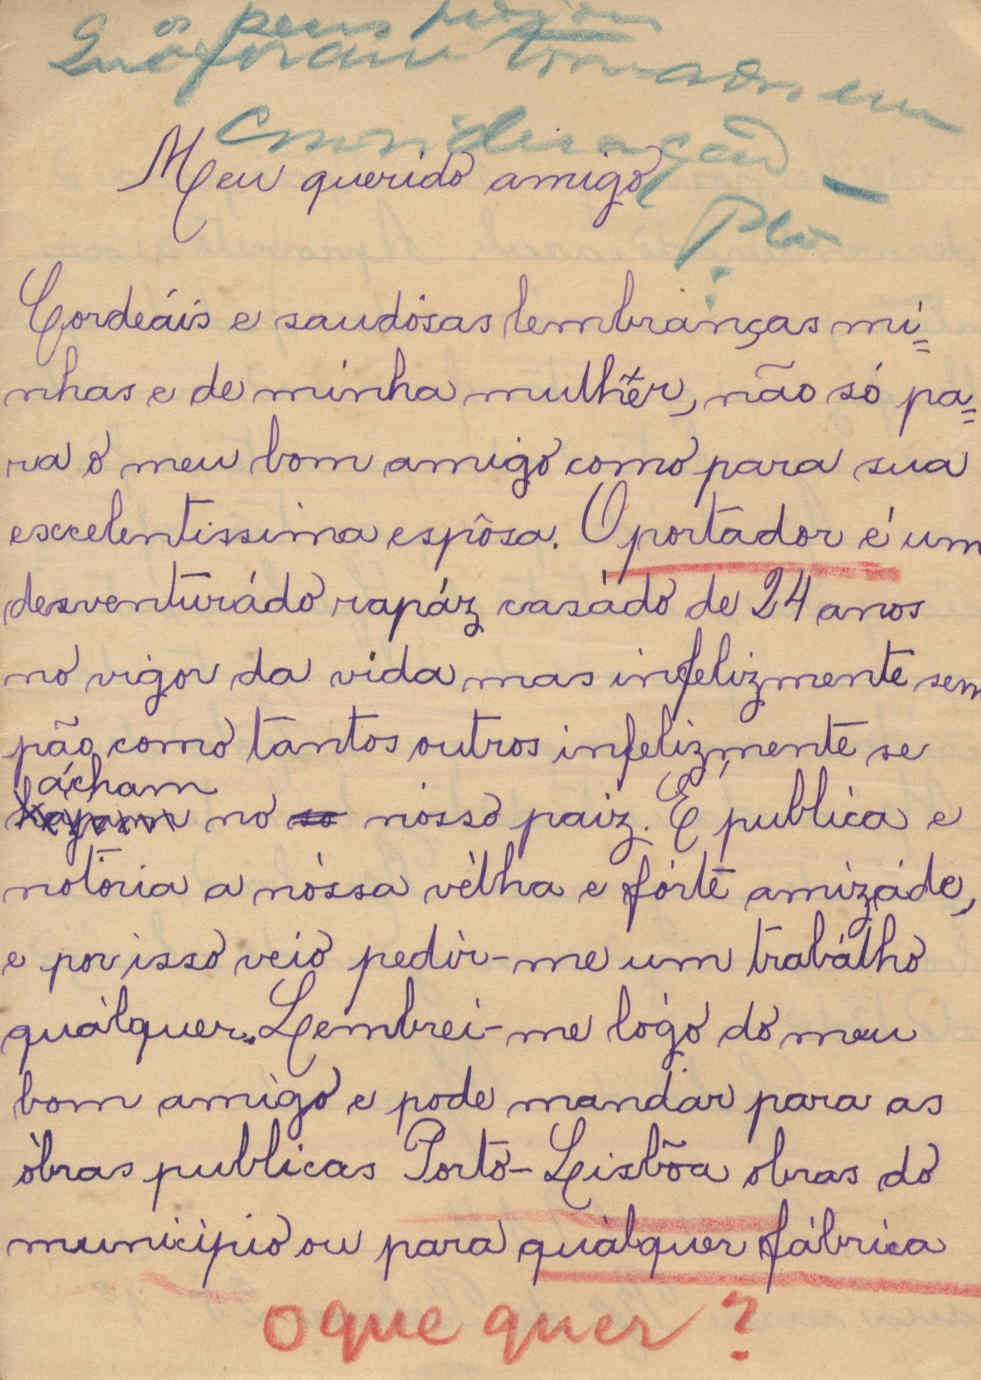 os
foram tomados em
consideração
Meu querido amigo
Cordeáis e saudósas lembranças mi=
nhas e de minha mulhêr, não só pa=
ra o meu bom amigo como para sua
excelentissima espôsa. O portador é um
desventurádo rapáz casádo de 24 anos
no vigor da vida mas infelizmente sem
pão como tantos outros infelizmente se
ácham
no so nosso paiz. É publica e
notória a nóssa vélha e fórte amizáde,
e por isso veio pedir-me um trabálho
quàlquer. Lembrei-me lógo do meu
bom amigo e pode mandar para as
òbras publicas Porto-Lisbôa obras do
municipio ou para quàlquer fábrica
O que quer?